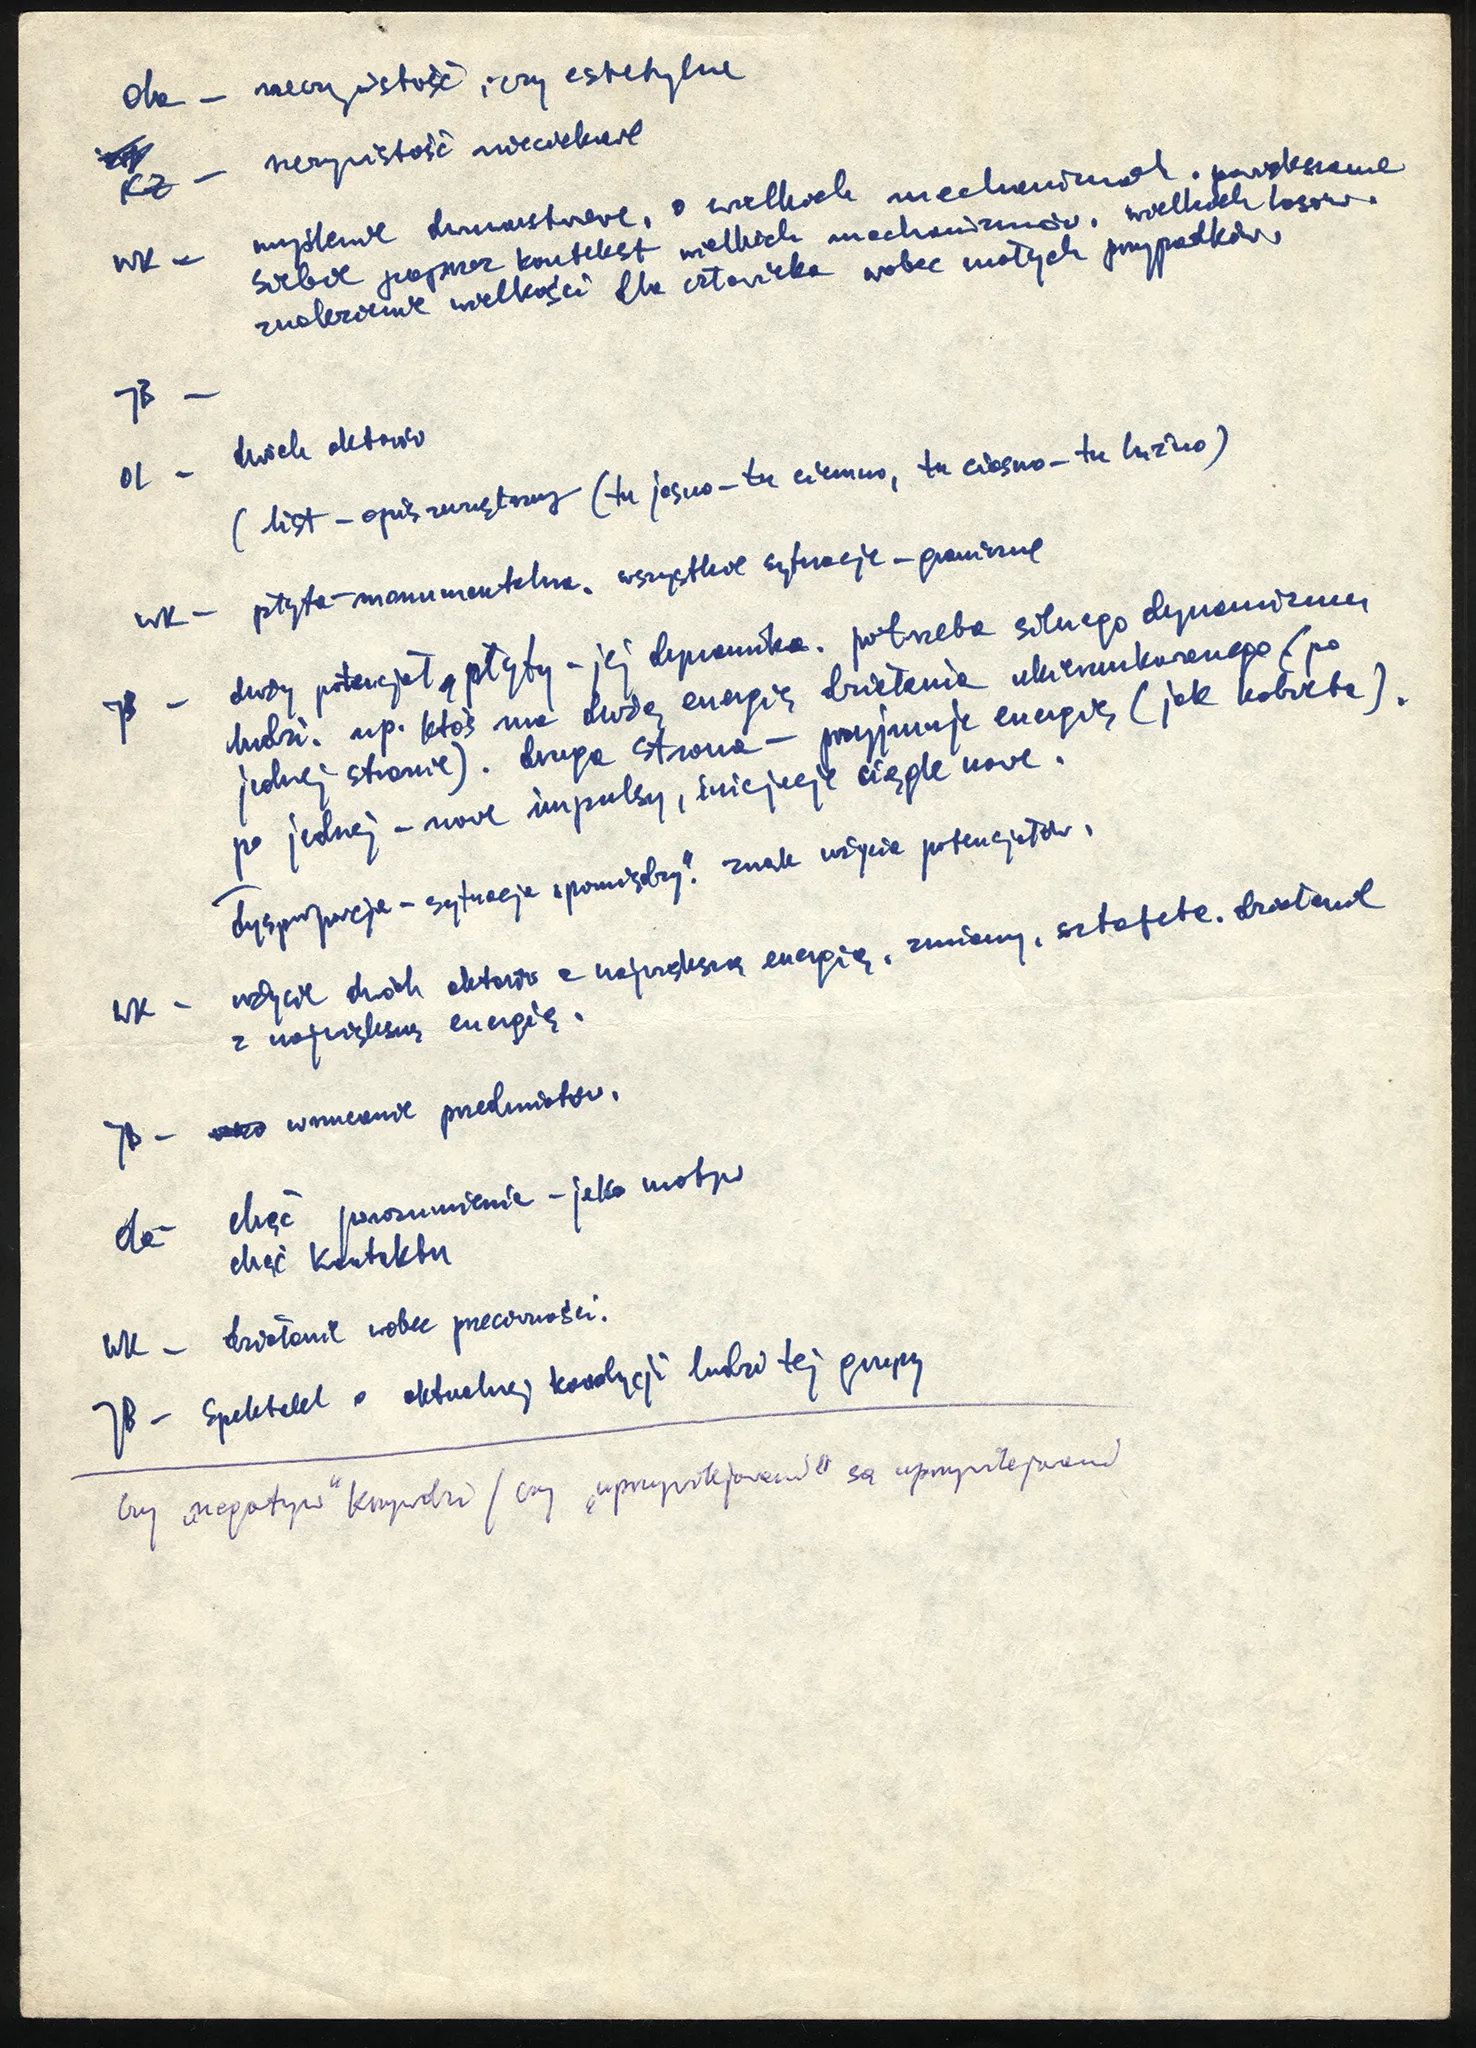 Ola – rzeczywistość, czy estetyka
KZ – rzeczywistość nieciekawe
WK – myślenie o wielkich mechanizmach. powiększanie
siebie poprzez kontekst wielkich mechanizmów. wielkich losów.
znalezienie wielkości dla człowieka wobec małych przypadków
JB –
OL – dwóch aktorów
(list – opis zewnętrzny (tu jasno – tu ciemno, tu ciasno – tu luźno)
WK – płyta – monumentalna. wszystkie sytuacje – graniczne
JB – duży potencjał płyty – jej dynamika. potrzeba silnego dynamizmu
ludzi. np. ktoś ma dużą energię działania ukierunkowanego (po
jednej stronie). druga strona – przyjmuje energię (jak kobieta).
po jednej – nowe impulsy, inicjacje ciągle nowe.
dysproporcja – sytuacja „pomiędzy”. znak użycia potencjałów.
WK – użycie dwóch aktorów z największą energią. zmiany. sztafeta. działanie
z największą energią.
JB – wrzucanie przedmiotów.
Ola – chęć porozumienia – jako motyw
chęć kontaktu
WK – działanie wobec przeciwności.
JB – spektakl o aktualnej kondycji ludzi tej grupy
czy „negatyw” krzywdzi / czy „uprzywilejowani” są uprzywilejowani